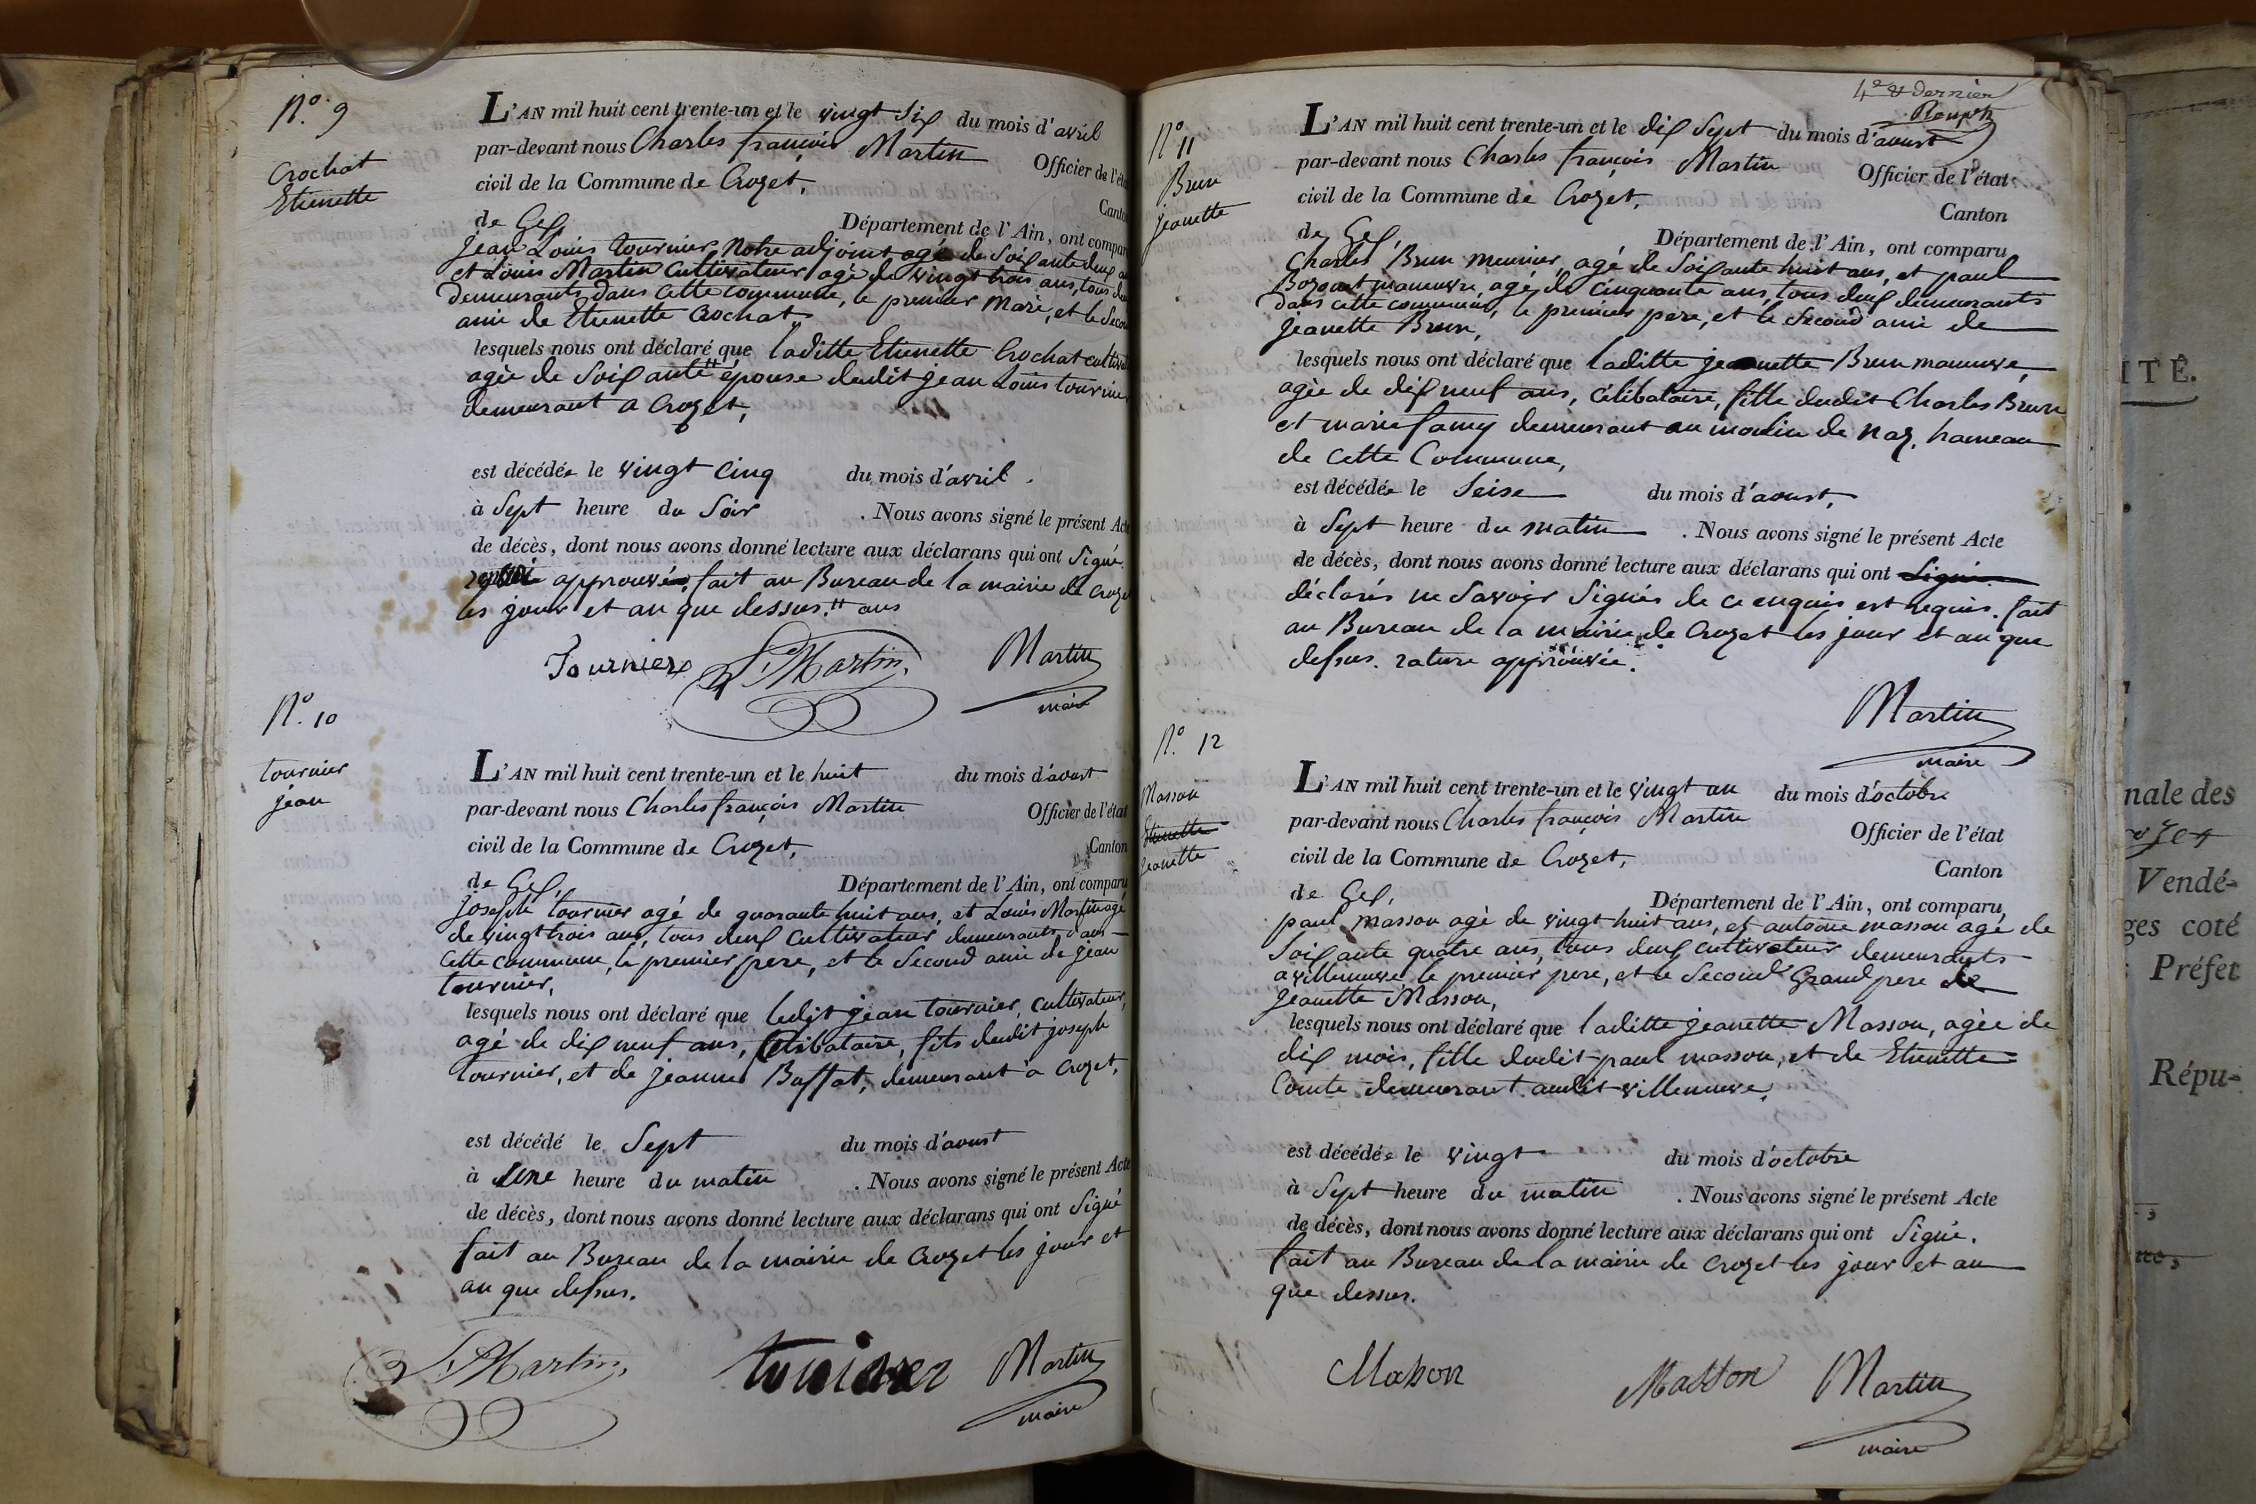 N.o 9
Crochat
Etienette
L'AN mil huit cent trente-un et le vingt six du mois d'avril
par-devant nous Charles françois Martin Officier de l'éta
civil de la Commune de Crozet,
Canto
de Gex, Département de l'Ain, ont compar
jean Louis tournier, Notre adjoint agé de Soixante deux a
et Louis Martin Cultivateur agé de vingt trois ans, tous deu
demeurants dans cette commune, le premier Mari, et le Secon
ami de Etienette Crochat
lesquels nous ont déclaré que laditte Etienette Crochat cultiva
agée de Soixante " épouse dudit jean Louis tournier
demeurant a Crozet,
est décédée le vingt cinq du mois d'avril.
à Sept heure du Soir . Nous avons signé le présent Acte
de décès, dont nous avons donné lecture aux déclarans qui ont Signé.
approuvé, fait au Bureau de la mairie de Croze
les jour et an que dessus. " ans
Tournier L. Martin. Martin
maire
N.o 10
tournier
jean
L'AN mil huit cent trente-un et le huit du mois d'aoust
par-devant nous Charles françois Martin Officier de l'état
civil de la Commune de Crozet,
Canton
de Gex, Département de l'Ain, ont comparu
joseph tournier agé de quarante huit ans, et Louis Martin agé
de vingt trois ans, tous deux cultivateur demeurants dans
cette commune, le premier pere, et le Second ami de jean
tournier,
lesquels nous ont déclaré que ledit jean tournier, cultivateur,
agé de dix neuf ans, Célibataire, fils dudit joseph
tournier, et de jeanne Buffat, demeurant à Crozet,
est décédé le Sept du mois d'aoust
à une heure du matin . Nous avons signé le présent Acte
de décès, dont nous avons donné lecture aux déclarans qui ont Signé
fait au Bureau de la mairie de Crozet les jour et
an que dessus.
L. Martin. Martin
maire
4e & dernier
N.o 11
Brun
jeanette
L'AN mil huit cent trente-un et le dix Sept du mois d'aoust
par-devant nous Charles françois Martin Officier de l'état
civil de la Commune de Crozet,
Canton
de Gex, Département de l'Ain, ont comparu
Charles Brun meunier, agé de Soixante huit ans, et paul
Bozonet maneuvre, agé de cinquante ans, tous deux demeurants
dans cette commune, le premier pere, et le Second ami de
jeanette Brun,
lesquels nous ont déclaré que laditte jeanette Brun maneuvre,
agée de dix neuf ans, célibataire, fille dudit Charles Brun
et marie famy demeurant au moulin de Naz, hameau
de cette Commune,
est décédée le Seise du mois d'aoust,
à Sept heure du matin . Nous avons signé le présent Acte
de décès, dont nous avons donné lecture aux déclarans qui ont Signé
déclarés ne Savoir Signés de ce enquis et requis. fait
au Bureau de la mairie de Crozet les jour et an que
dessus. rature approuvée.
Martin
maire
N.o 12
Masson
Etienette
jeanette
L'AN mil huit cent trente-un et le vingt un du mois d'octobre
par-devant nous Charles françois Martin Officier de l'état
civil de la Commune de Crozet,
Canton
de Gex, Département de l'Ain, ont comparu,
paul masson agé de vingt huit ans, et antoine masson agé de
Soixante quatre ans, tous deux cultivateur demeurants
a villeneuve, le premier pere, et le Second Grand pere de
jeanette Masson,
lesquels nous ont déclaré que laditte jeanette Masson, agée de
dix mois, fille dudit paul masson, et de Etienette
Comte demeurant audit villeneuve,
est décédée le vingt du mois d'octobre
à Sept heure du matin . Nous avons signé le présent Acte
de décès, dont nous avons donné lecture aux déclarans qui ont Signé.
fait au Bureau de la mairie de Crozet les jour et an
que dessus.
Masson Masson Martin
maire
ITÉ.
nale des
Vendé-
ges coté
Préfet
Répu-